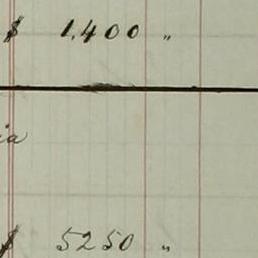 $ 1,400 "
ia
$ 5250 "